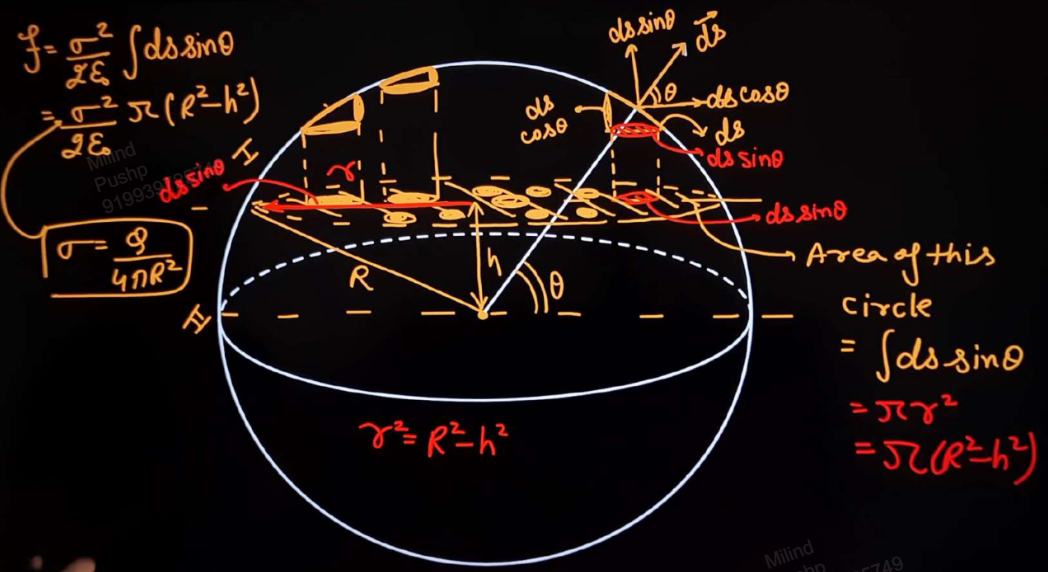 f = σ²/2ε₀ ∫ds sinθ
= σ²/2ε₀ π(R²-h²)
σ = Q/4πR²
I
II
ds sinθ
r
R
h
θ
ds sinθ
ds⃗
θ
ds cosθ
ds cosθ
ds
ds sinθ
ds sinθ
→ Area of this
circle
= ∫ds sinθ
= πr²
= π(R²-h²)
r² = R²-h²
Milind
Pushp
Milind